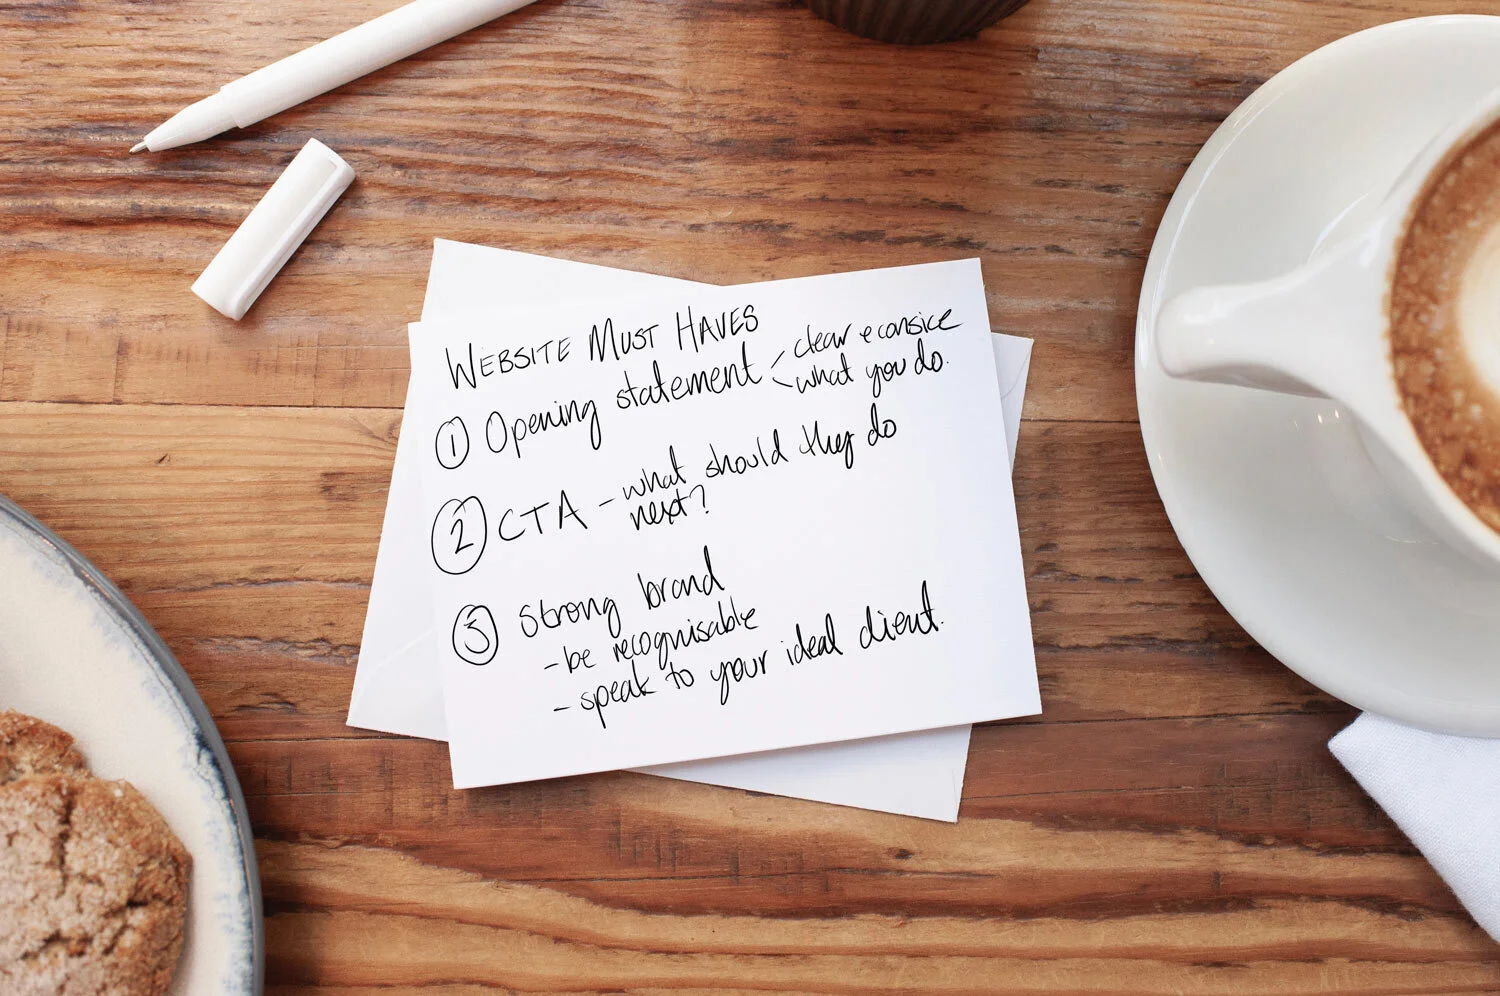 WEBSITE MUST HAVES
1 Opening statement < clear & consice
what you do.
2 CTA - what should they do
next?
3 Strong brand
- be recognisable
- speak to your ideal client.